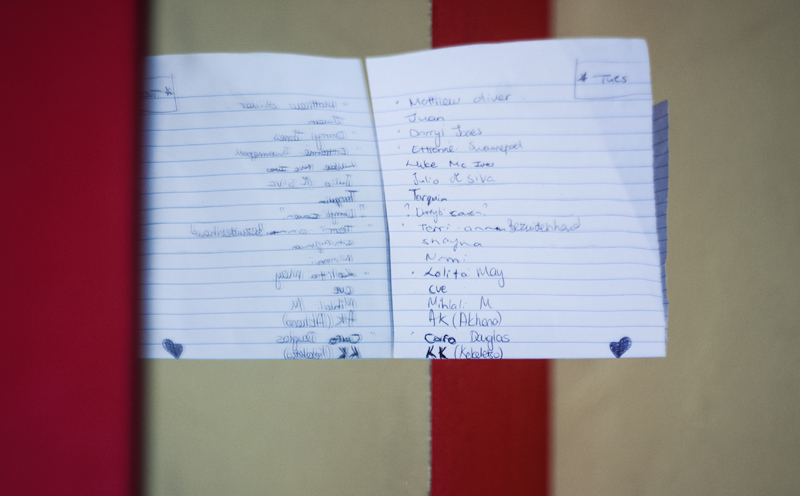 * Tues
· Matthew oliver
Juan
· Darryl Jones
· Ettienne Swanepoel
Luke Mc
Julio d silva
Tarquin
? Darryl ?
· Terri ann Bezuidenhoud
shayna
Nomi
· Lolita May
eve
Mihlali M
AK (Akhona)
· Cairo Douglas
KK (Kekeletso)